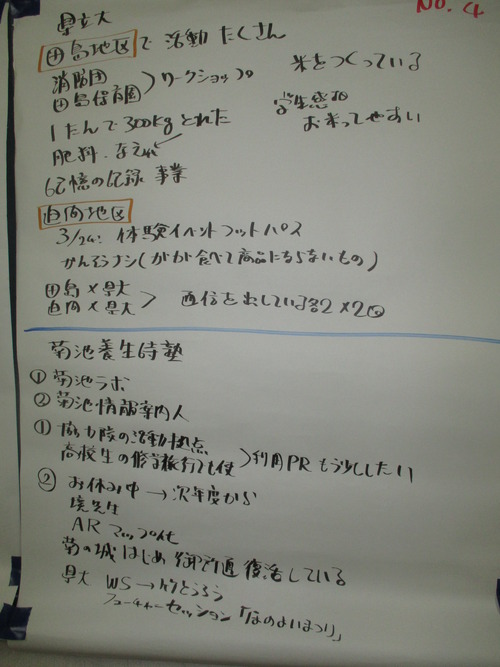 No. 4
県立大
田島地区で活動たくさん
消防団
田島保育園 〉ワークショップ
米をつくっている
学生感謝
お米ってやすい
1たんで300kgとれた
肥料・なえが
記憶の記録事業
迫間地区
3/24: 体験イベントフットパス
かんそうナシ(がが食べて商品にならないもの)
田島×県大
迫間×県大 〉通信を出している各2×2回
菊池養生詩塾
①菊池ラボ
②菊池情報案内人
①協力隊の活動拠点
高校生の修学旅行でも使 〉利用PRもう少ししたい
②お休み中→次年度から
先生
ARマップ化
菊の城はじめ御所通復活している
県大 WS→竹とうろう
フューチャーセッション「なのよいまつり」